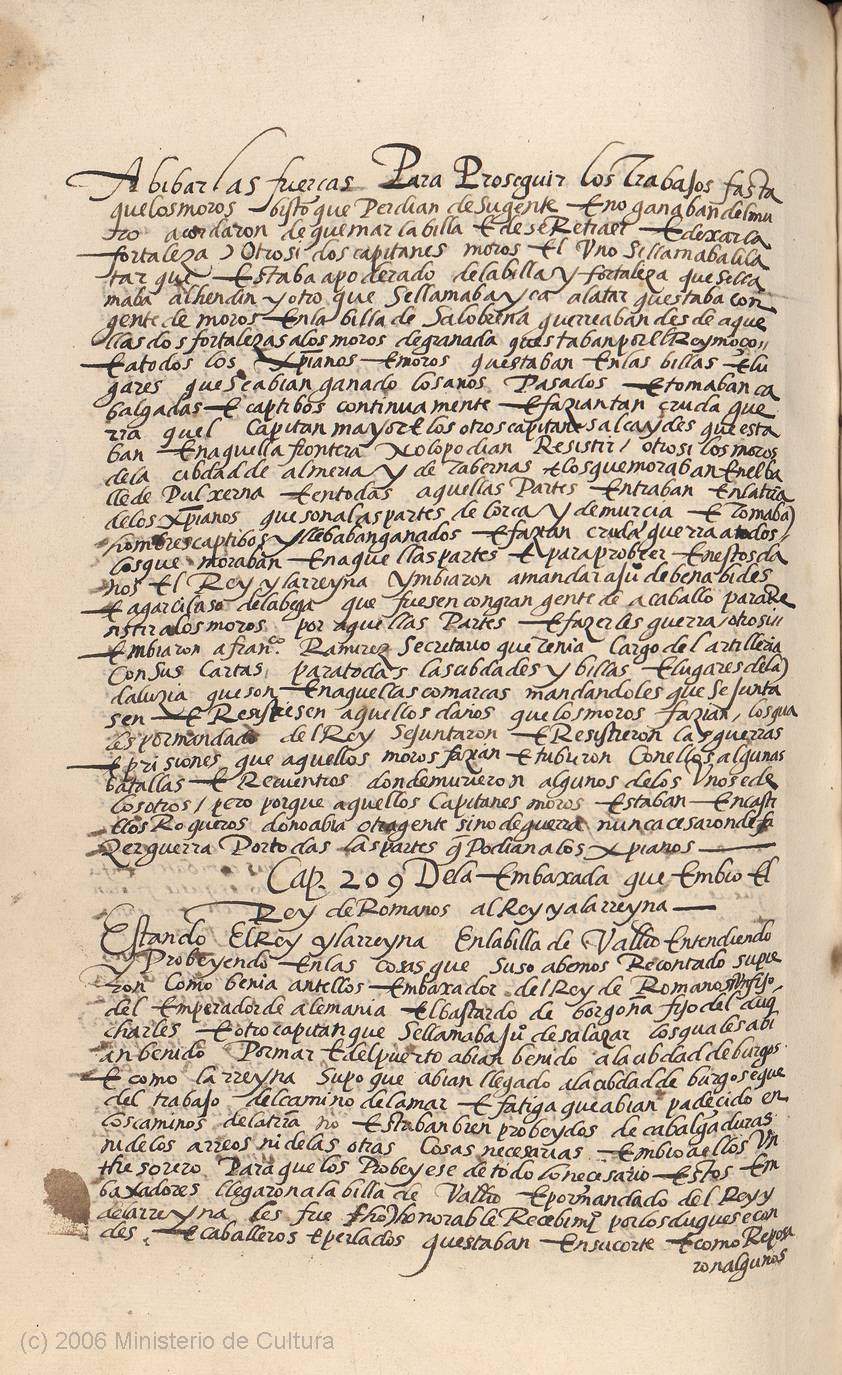 Abibar las fuercas Para Proseguir los Trabajos fasta
que los moros bisto que Perdian de su gente E no ganaban del mu
ro acordaron de quemar la billa E de se Retraer E dexar la
fortaleza / Otrosi dos capitanes moros El Vno se llamaba ali la
tar que Estaba apoderado de la billa y fortaleza que se lla
maba alhendin y otro que se llamaba yça alatar questaba con
gente de moros En la billa de Salobreña guerreaban desde aque
llas dos fortalezas a los moros de granada questaban por El Rey moço
E a todos los xpianos E moros questaban En las billas E lu
gares que se abian ganado los años Pasados E tomaban ca
balgadas E captibos continuamente E fazian tan cruda gue
rra quel Capitan mayor E los otros capitanes alcaydes questa
ban En aquella frontera no lo podian Resistir / otrosi los moros
de la cibdad de almeria y de Tabernas E los que moraban En el ba
lle de Pulxerna E en todas aquellas Partes Entraban En la trra
de los xpianos que son a las partes de lorca y de murcia E Tomaba
hombres captibos y llebaban ganados E fazian cruda guerra a todos
los que moraban En aquellas partes E para probeer En estos da
ños El Rey y la rreyna ymbiaron a mandar a juº de benabides
E a garcilaso de la bega que fuesen con gran gente de a caballo para Re
sistir a los moros por aquellas Partes E fazerles guerra / otrosi
Embiaron a franco Ramirez Secretario que Tenia Cargo del artilleria
Con sus Cartas para todas las cibdades y billas E lugares dela
daluzia que son En aquellas comarcas mandandoles que se junta
sen E Resistiesen aquellos daños que los moros fazian / los qua
les por mandado del Rey Se juntaron E Resistieron las guerras
E prisiones que aquellos moros fazian E tubieron Con ellos algunas
batallas E Recuentros donde murieron algunos de los Vnos E de
los otros / pero porque aquellos Capitanes moros Estaban En casti
llos Roqueros do no abia otra gente sino de guerra nunca cesaron de fa
zer guerra Por todas las partes q Podian a los xpianos
Cap. 209 De la Embaxada que Embio El
Rey de Romanos al Rey y a la rreyna
Estando El Rey y la rreyna En la billa de Vallid Entendiendo
y Probeyendo En las cosas que suso abemos Recontado supie
ron como benia ant ellos Embaxador del Rey de Romanos fijo
del Emperador de alemania El bastardo de borgoña fijo del duq
charles E otro capitan que se llamaba juº de salazar los quales abi
an benido Por mar E del puerto abian benido a la cibdad de burgos
E como la rreyna supo que abian llegado a la cibdad de burgos E que
del trabajo del camino de la mar E fatiga que abian padecido en
los caminos de la trra no Estaban bien probeydos de cabalgaduras
ni de los arreos ni de las otras Cosas necesarias Embio a ellos Vn
thesorero Para que los Probeyese de todo lo necesario Estos Em
baxadores llegaron a la billa de Vallid E por mandado del Rey y
de la rreyna les fue fho honorable Recebimi por los duques e con
des E caballeros E perlados questaban En su corte E como Reposa
ron algunos
(c) 2006 Ministerio de Cultura